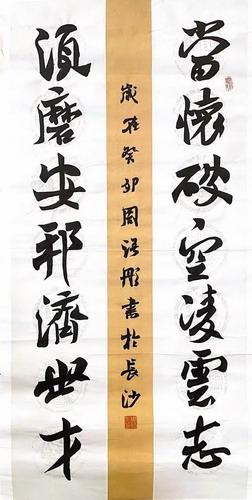 當懷破空凌雲志
須磨安邦濟世才
歲在癸卯周語彤書於長沙